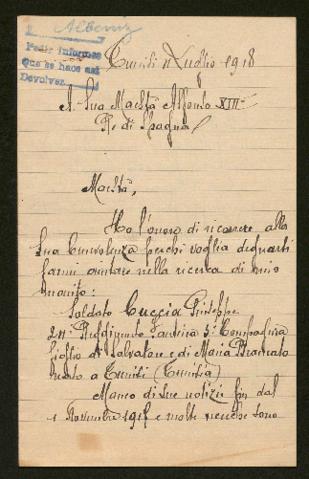 Albeniz
Pedir informes
Que se haos asi
Devolver
Tunisi 11 Luglio 1918
A Sua Maestà Alfonso XIII
Re di Spagna
Maestà,
Ho l'onore di ricorrere alla
Sua benevolenza perchè voglia degnarsi
farmi aiutare nella ricerca di mio
marito:
Soldato Cuccia Giuseppe
Reggimento Fanteria 5ª Compagnia
figlio di Salvatore e di Maria
nato a Tunisi (Tunisia)
Manco di Sue notizie fin dal
1 Novembre 1917 e molte ricerche sono